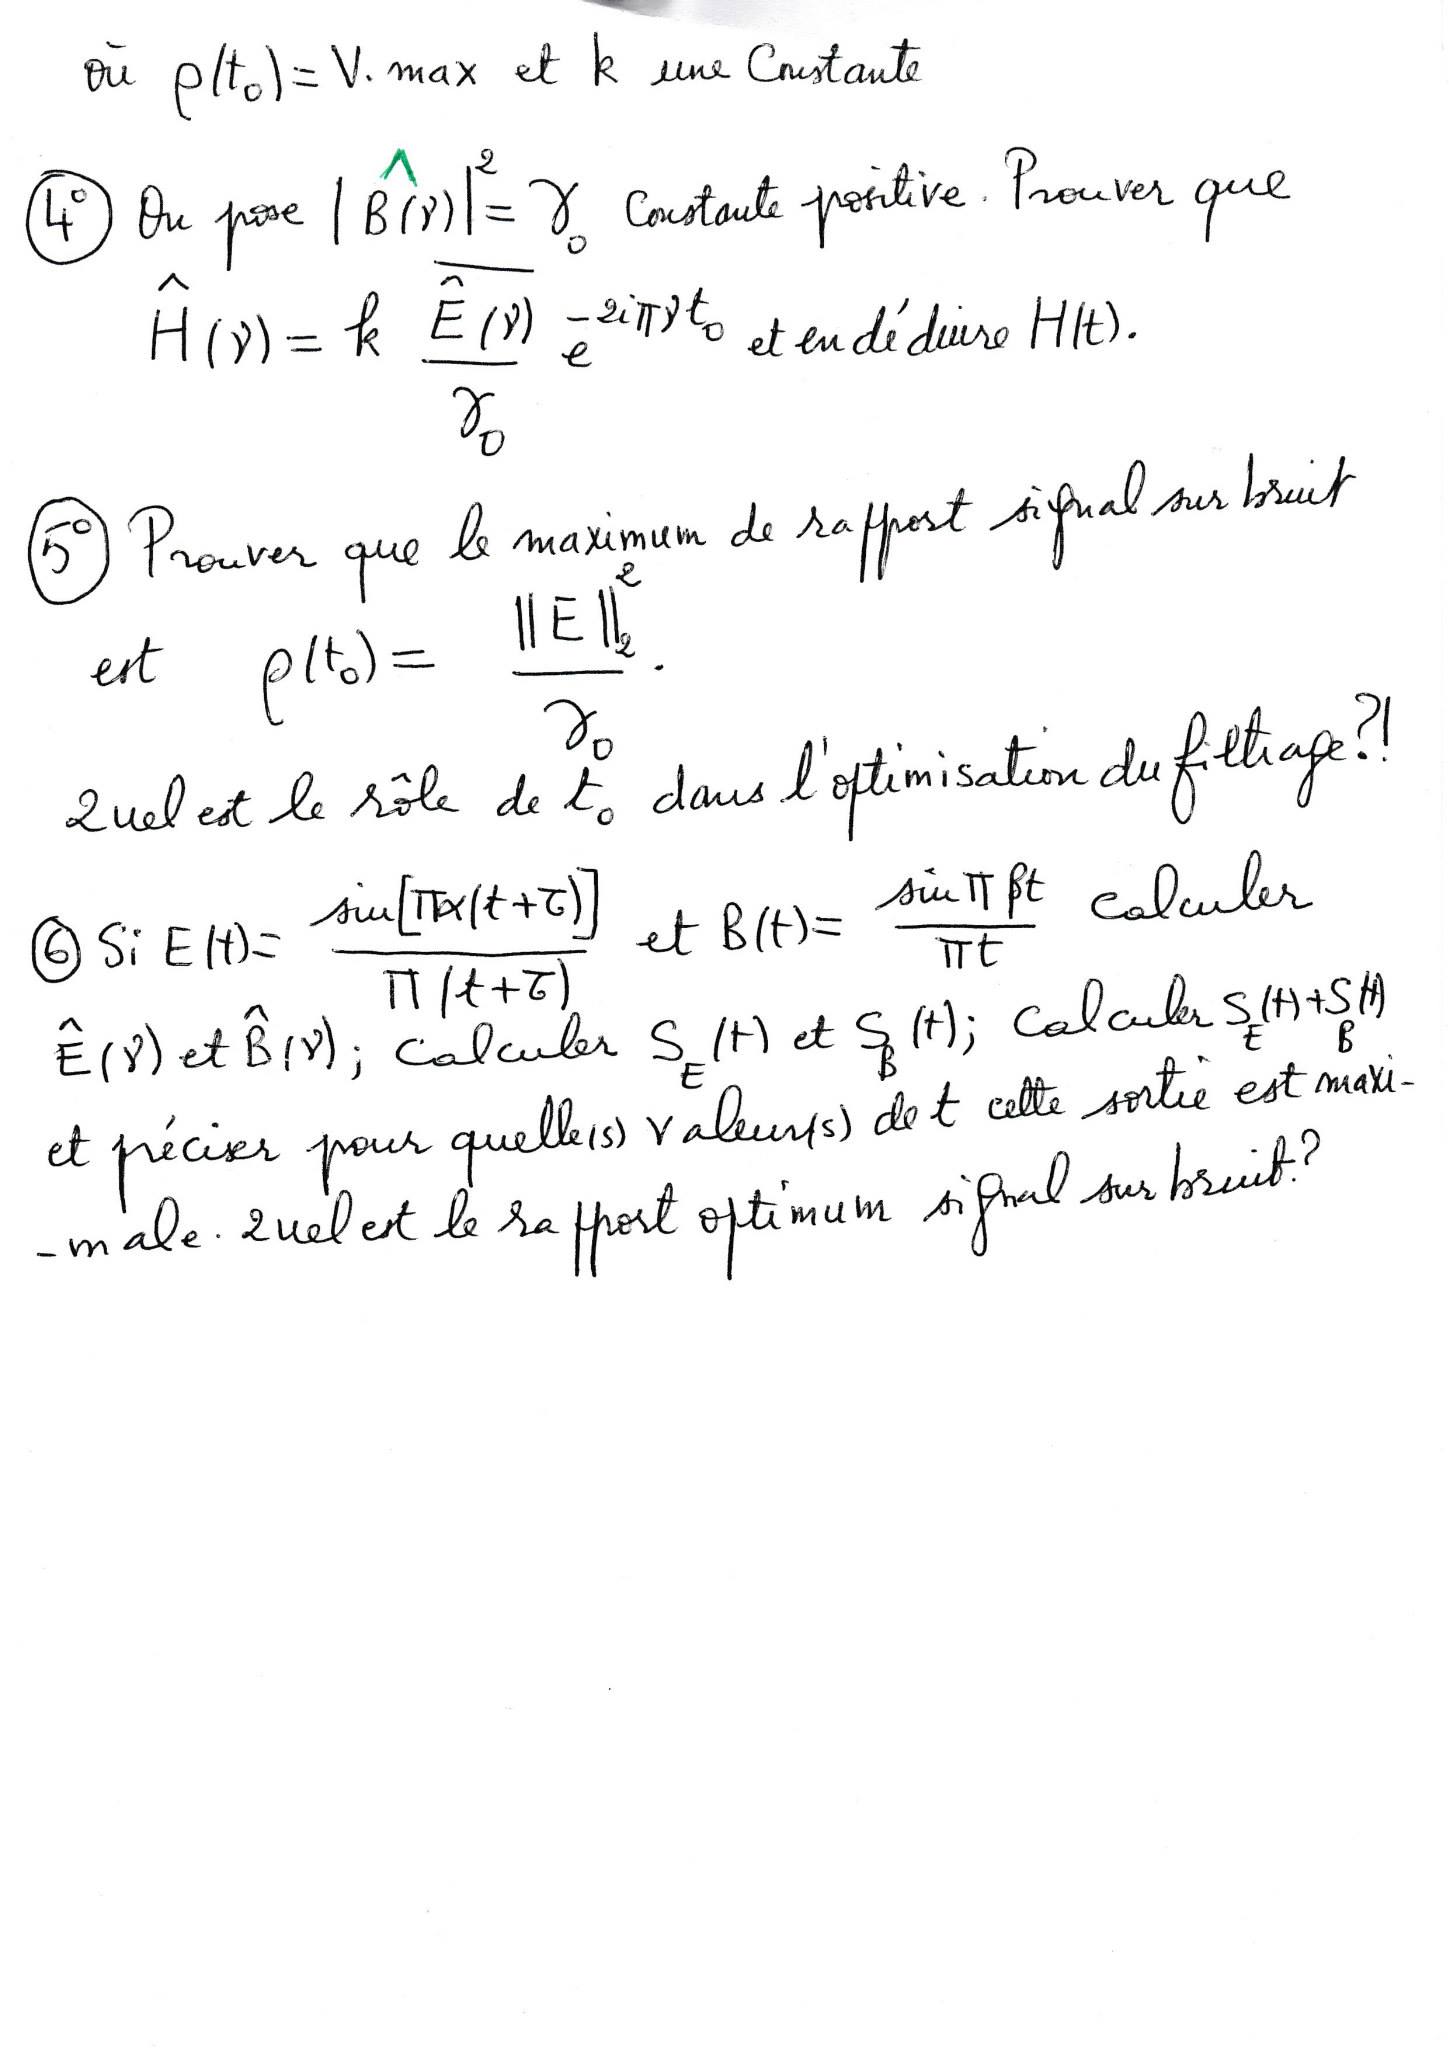 où ρ(t₀) = V. max et k une Constante
4° On pose |B̂(ν)|² = γ₀ Constante positive. Prouver que
Ĥ(ν) = k \overline{Ê(ν)}/γ₀ e^{-2iπνt₀} et en déduire H(t).
5° Prouver que le maximum de rapport signal sur bruit
est ρ(t₀) = ||E||₂²/γ₀.
Quel est le rôle de t₀ dans l'optimisation du filtrage?!
6 Si E(t) = sin[πα(t+τ)]/π(t+τ) et B(t) = sin πβt/πt calculer
Ê(ν) et B̂(ν); Calculer S_E(t) et S_B(t); Calculer S_E(t)+S_B(t)
et préciser pour quelle(s) valeur(s) de t cette sortie est maxi-
-male. Quel est le rapport optimum signal sur bruit?